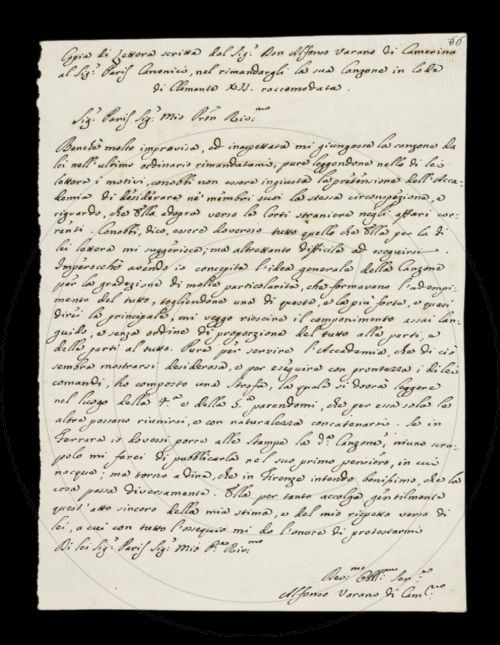 66
Copia di Lettera scritta dal Sig.r Don Alfonso Varano di Camerino
al Sig.r Canonico, nel rimandargli la sua Canzone in lode
di Clemente XII. raccomodata.
Sig.r Sig.r Mio Pron Riv.mo
Benchè molto improvisa, ed inaspettata mi giungesse la canzone da
lei nell'ultimo ordinario rimandatami; pure leggendone nella di lei
lettera i motivi, conobbi non essere ingiusta la pretensione dell'Acca-
demia di desiderare ne' membri suoi la stessa circonspezione, e
riguardo, che Ella adopra verso le Corti straniere negli affari cor-
renti. Conobbi, dico, essere doveroso tutto quello che Ella per la di
lei lettera mi suggerisce; ma altrettanto difficile ad eseguirsi.
Imperocchè avendo io concepita l'idea generale della Canzone
per la gradazione di molte particolarità, che formavano l'adempi-
mento del tutto, togliendone una di queste, e la più forte, e quasi
direi la principale, mi veggo riescire il componimento assai lan-
guido, e senza ordine di proporzione del tutto alle parti, e
delle parti al tutto. Pure per servire l'Accademia, che di ciò
sembra mostrarsi desiderosa, e per eseguire con prontezza i di lei
comandi, ho composto una Strofa, la quale si dovrà leggere
nel luogo della 4.a e della 5.a parendomi, che per essa sola le
altre possano riunirsi, e con naturalezza concatenarsi. Se in
Ferrara io dovessi porre alle stampe la d.a Canzone, niuno scru-
polo mi farei di pubblicarla nel suo primo pensiero, in cui
nacque; ma torno a dire, che in Firenze intendo benissimo, che la
cosa passa diversamente. Ella per tanto accolga gentilmente
quest'atto sincero della mia stima, e del mio rispetto verso di
lei, a cui con tutto l'ossequio mi do l'onore di protestarmi
Di lei Sig.r Sig.r Mio Riv.mo
Alfonso Varano di Cam.no